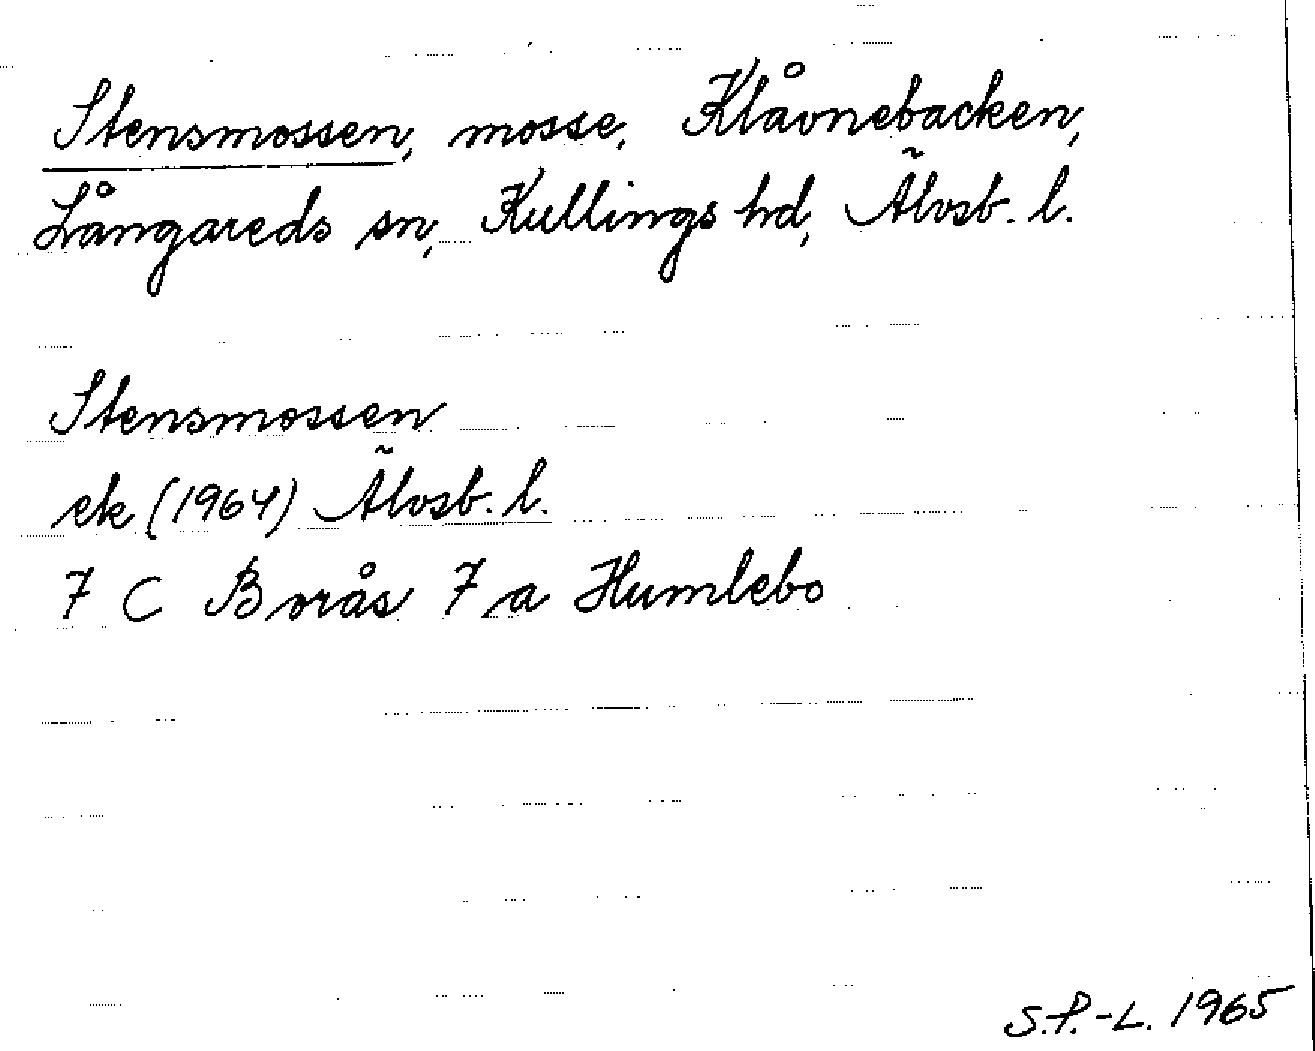 Stensmossen, mosse, Klåvnebacken,
Långareds sn, Kullings hd, Älvsb. l.
Stensmossen
ek (1964) Älvsb. l.
7 C Borås 7 a Humlebo
S.P.-L. 1965